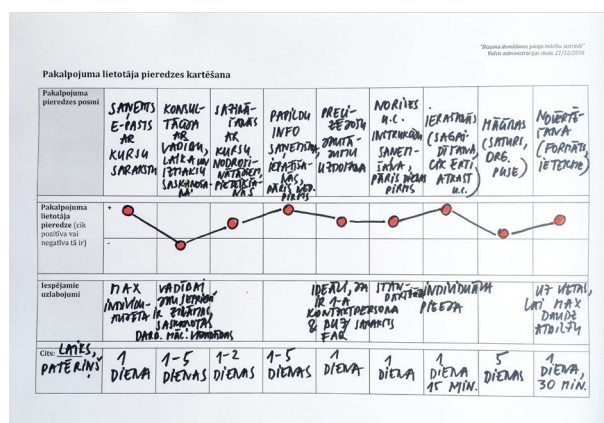 "Dizaina domāšanas pieeja mācību izstrādē"
Valsts administrācijas skola, 21/12/2018
Pakalpojuma lietotāja pieredzes kartēšana
Pakalpojuma
pieredzes posmi
SAŅEMTS
E-PASTS
AR
KURSU
SARAKSTU
KONSUL-
TĀCIJA
AR
VADĪBU,
LAIKA UN
IZMAKSU
SASKAŅOŠA-
NA
SAZINĀ-
ŠANĀS
AR
KURSU
NODROŠI-
NĀTĀJIEM,
PIETEIKŠA-
NĀS
PAPILDU
INFO
SAŅEMŠANA,
PĀRIS NED.
PIRMS
PRECI-
ZĒJOŠU
JAUTĀ-
JUMU
UZDOŠANA
NORISES
U.C.
INSTRUKCIJU
SAŅEM-
ŠANA,
PĀRIS DIENAS
PIRMS
IERAŠANĀS
(SAGAI-
DĪŠANA
CIK ĒRTI
ATRAST
U.C.)
MĀCĪBAS
(SATURS,
ORG.
PUSE)
NOVĒRTĒ-
ŠANA
(FORMĀTS,
IETEKME)
Pakalpojuma
lietotāja
pieredze (cik
pozitīva vai
negatīva tā ir)
+
-
Iespējamie
uzlabojumi
MAX
VADĪBAI
IR ZINĀMAS,
SASKAŅOTAS
DARB. MĀC. VAJADZĪBAS
IDEĀLI, JA
IR 1-A
KONTAKTPERSONA
& BUJ SARAKSTS
FAQ
STAN-
INDIVIDUĀLA
PIEEJA
UZ VIETAS,
LAI MAX
DAUDZ
ATBILŽU
Cits: LAIKS,
PATĒRIŅŠ
1
DIENA
1-5
DIENAS
1-2
DIENAS
1-5
DIENAS
1
DIENA
1
DIENA
1
DIENA
15 MIN.
5
DIENAS
1
DIENA,
30 MIN.